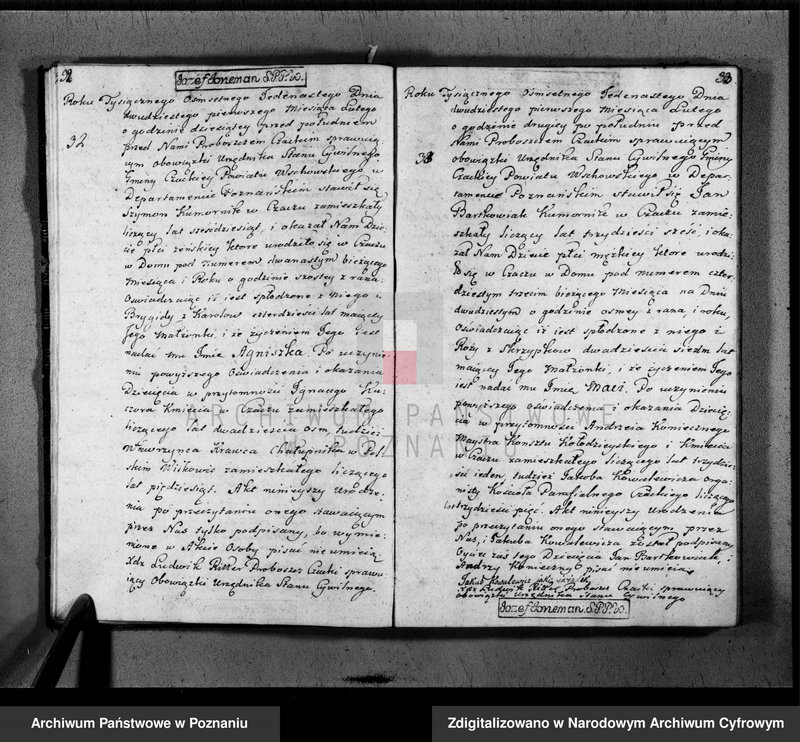 32
Jozéf Joneman S.P.P.W.
Roku Tysiącznego Osmsetnego Jedenastego Dnia
dwudziestego pierwszego Miesiąca Lutego
o godzinie dziesiątey przed południem
32
przed Nami Proboszczem Czackim sprawuią
cym obowiązki Urzędnika Stanu Cywilnego
Gminy Czackiey Powiatu Wschowskiego w
Departamencie Poznańskim stawił się
Szymon Kumornik w Czaczu zamieszkały
liczący lat szesdziesiąt, i okazał Nam Dzie
cie płci żeńskiey ktore urodziło się w Czaczu
w Domu pod Numerem dwanastym bieżącego
Miesiąca i Roku o godzinie szostey z rana.
Oswiadczaiąc iż iest spłodzone z niego i
Brygidy z Karolow czterdziesci lat maiącey
Jego małżonki, i że życzeniem Jego iest
nadac mu Imie Agniszka. Po uczynie
niu powyższego Oświadczenia i okazania
Dziecięcia w przytomności Ignacego Ka
czora Kmiecia w Czaczu zamieszkałego
liczącego lat dwadziescia osm, tudzież
Wawrzynca Krawca Chałupnika w Pol
skim Wilkowie zamieszkałego liczącego
lat pięćdziesiąt. Akt ninieyszy Urodze
nia po przeczytaniu onego stawaiącym
przez Nas tylko podpisany, bo wymie
nione w Akcie Osoby pisac nieumieią.
Xdz Ludwik Ritter Proboszcz Czacki sprawu
iący Obowiązki Urzędnika Stanu Cywilnego.
33
Roku Tysiącznego Osmsetnego Jedenastego Dnia
dwudziestego pierwszego Miesiąca Lutego
o godzinie drugiey po południu przed
Nami Proboszczem Czackim sprawuiącym
33
obowiązki Urzędnika Stanu Cywilnego Gminy
Czackiey Powiatu Wschowskiego w Depar
tamencie Poznańskim stawił się Jan
Bartkowiak Kumornik w Czaczu zamie
szkały liczący lat trzydzieści szesc, i oka
zał Nam Dziecie płci męzkiey ktore urodzi
ło się w Czaczu w Domu pod numerem czter
dziestym trzecim bieżącego Miesiąca na Dniu
dwudziestym o godzinie osmey z rana i roku,
Oświadczaiąc iż iest spłodzone z niego i
Roży z Skrzypkow dwadziescia siedm lat
maiącey Jego Małżonki, i że życzeniem Jego
iest nadać mu Imie Maci. Po uczynieniu
powyższego oświadczenia i okazania Dziecię
cia w przytomności Andrzeia Koniecznego
Maystra Konsztu Kołodzieyskiego i Kmiecia
w Czaczu zamieszkałego liczącego lat trzydzie
ści ieden, tudzież Jakuba Kowalewicza Orga
nisty Kościoła Parafialnego Czackiego liczącego
lat trzydziesci pięć. Akt ninieyszy Urodzenia
po przeczytaniu onego stawaiącym przez
Nas, i Jakuba Kowalewicza został podpisany,
Oyciec zaś tego Dziecięcia Jan Bartkowiak, i
Andrzy Konieczny pisać nieumieią
Jakub Kowalewic jako świadek
Xdz Ludwik Ritter Proboszcz Czacki sprawuiący
obowiązki Urzędnika Stanu Cywilnego
Jozéf Joneman S.P.P.W.
ARCHIWUM PAŃSTWOWE
W POZNANIU
Archiwum Państwowe w Poznaniu
Zdigitalizowano w Narodowym Archiwum Cyfrowym